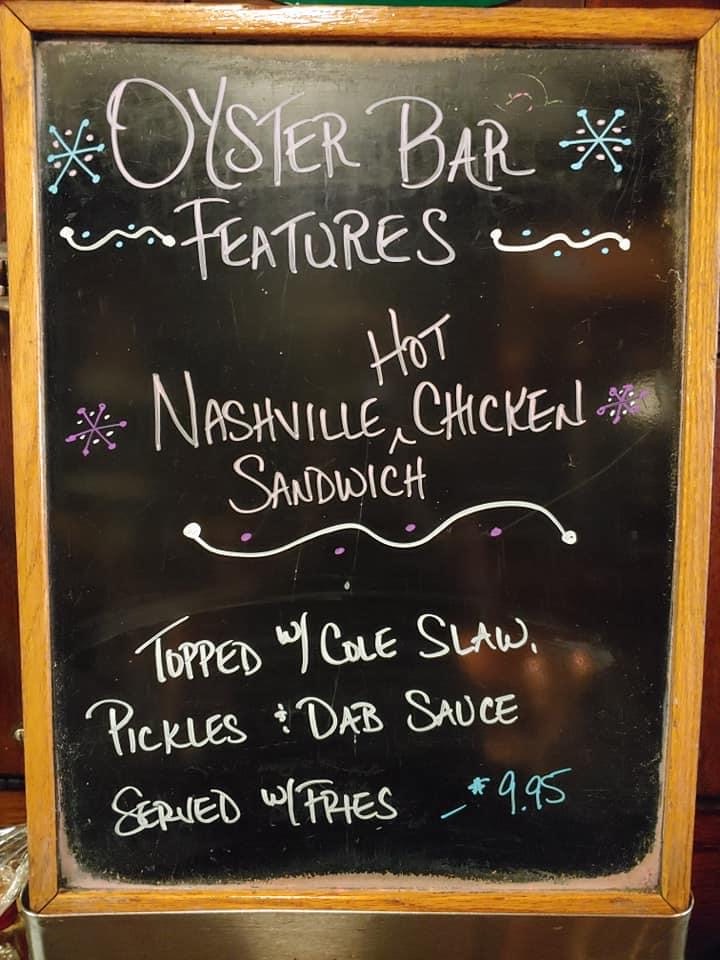 OYSTER BAR
FEATURES
HOT
NASHVILLE ^ CHICKEN
SANDWICH
TOPPED W/ COLE SLAW,
PICKLES & DAB SAUCE
SERVED W/ FRIES - $9.95